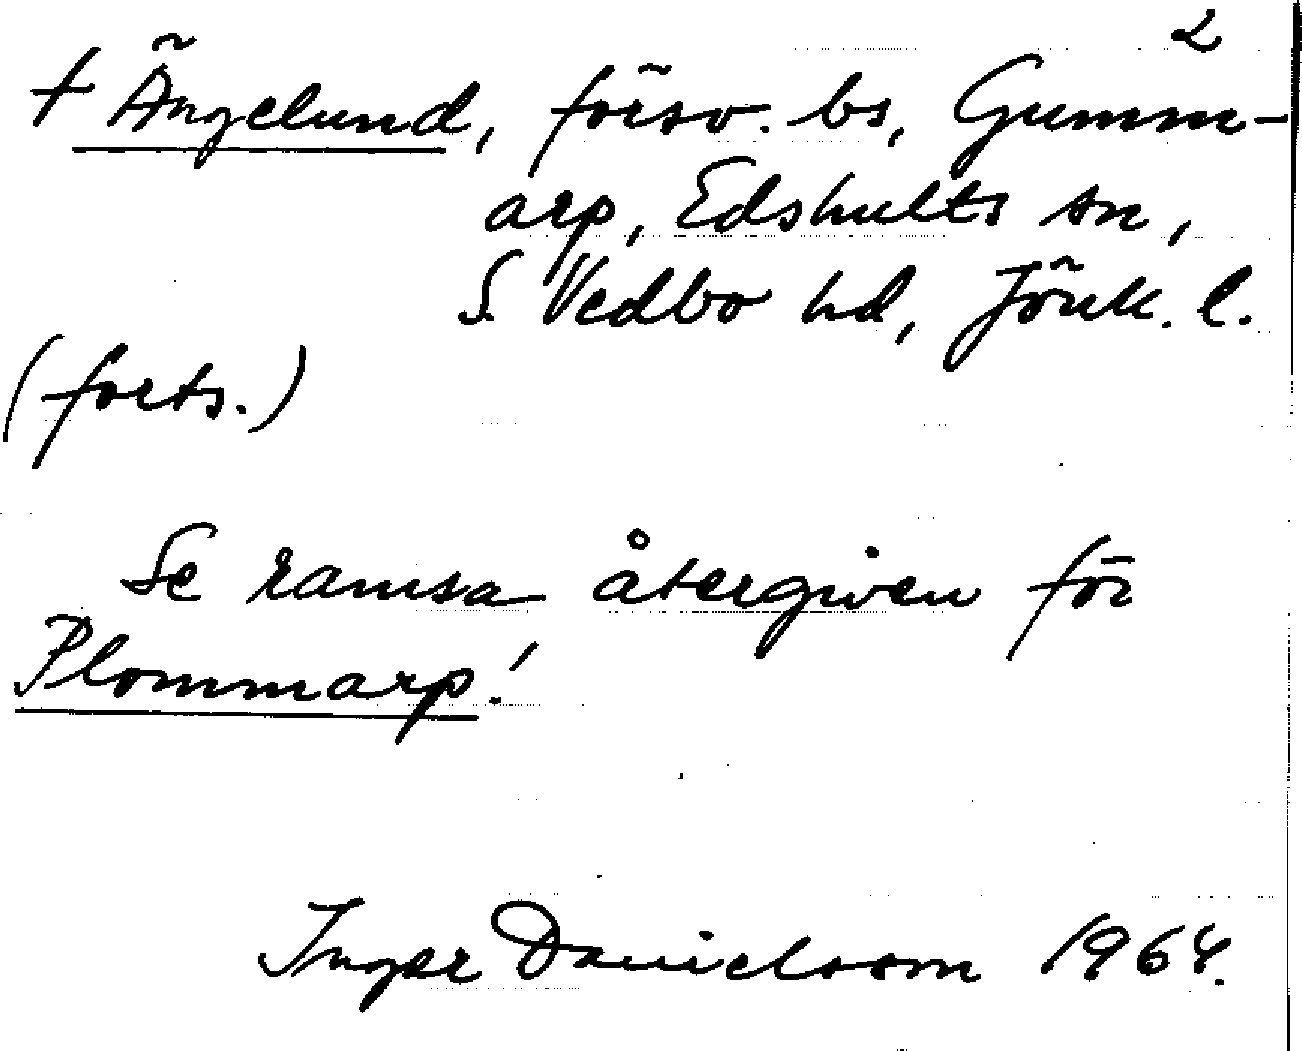 2
† Ängelund, försv. bs, Gumm-
arp, Edshults sn,
S. Vedbo hd, Jönk. l.
(forts.)
Se ramsa återgiven för
Plommarp!
Inger Danielsson 1964.